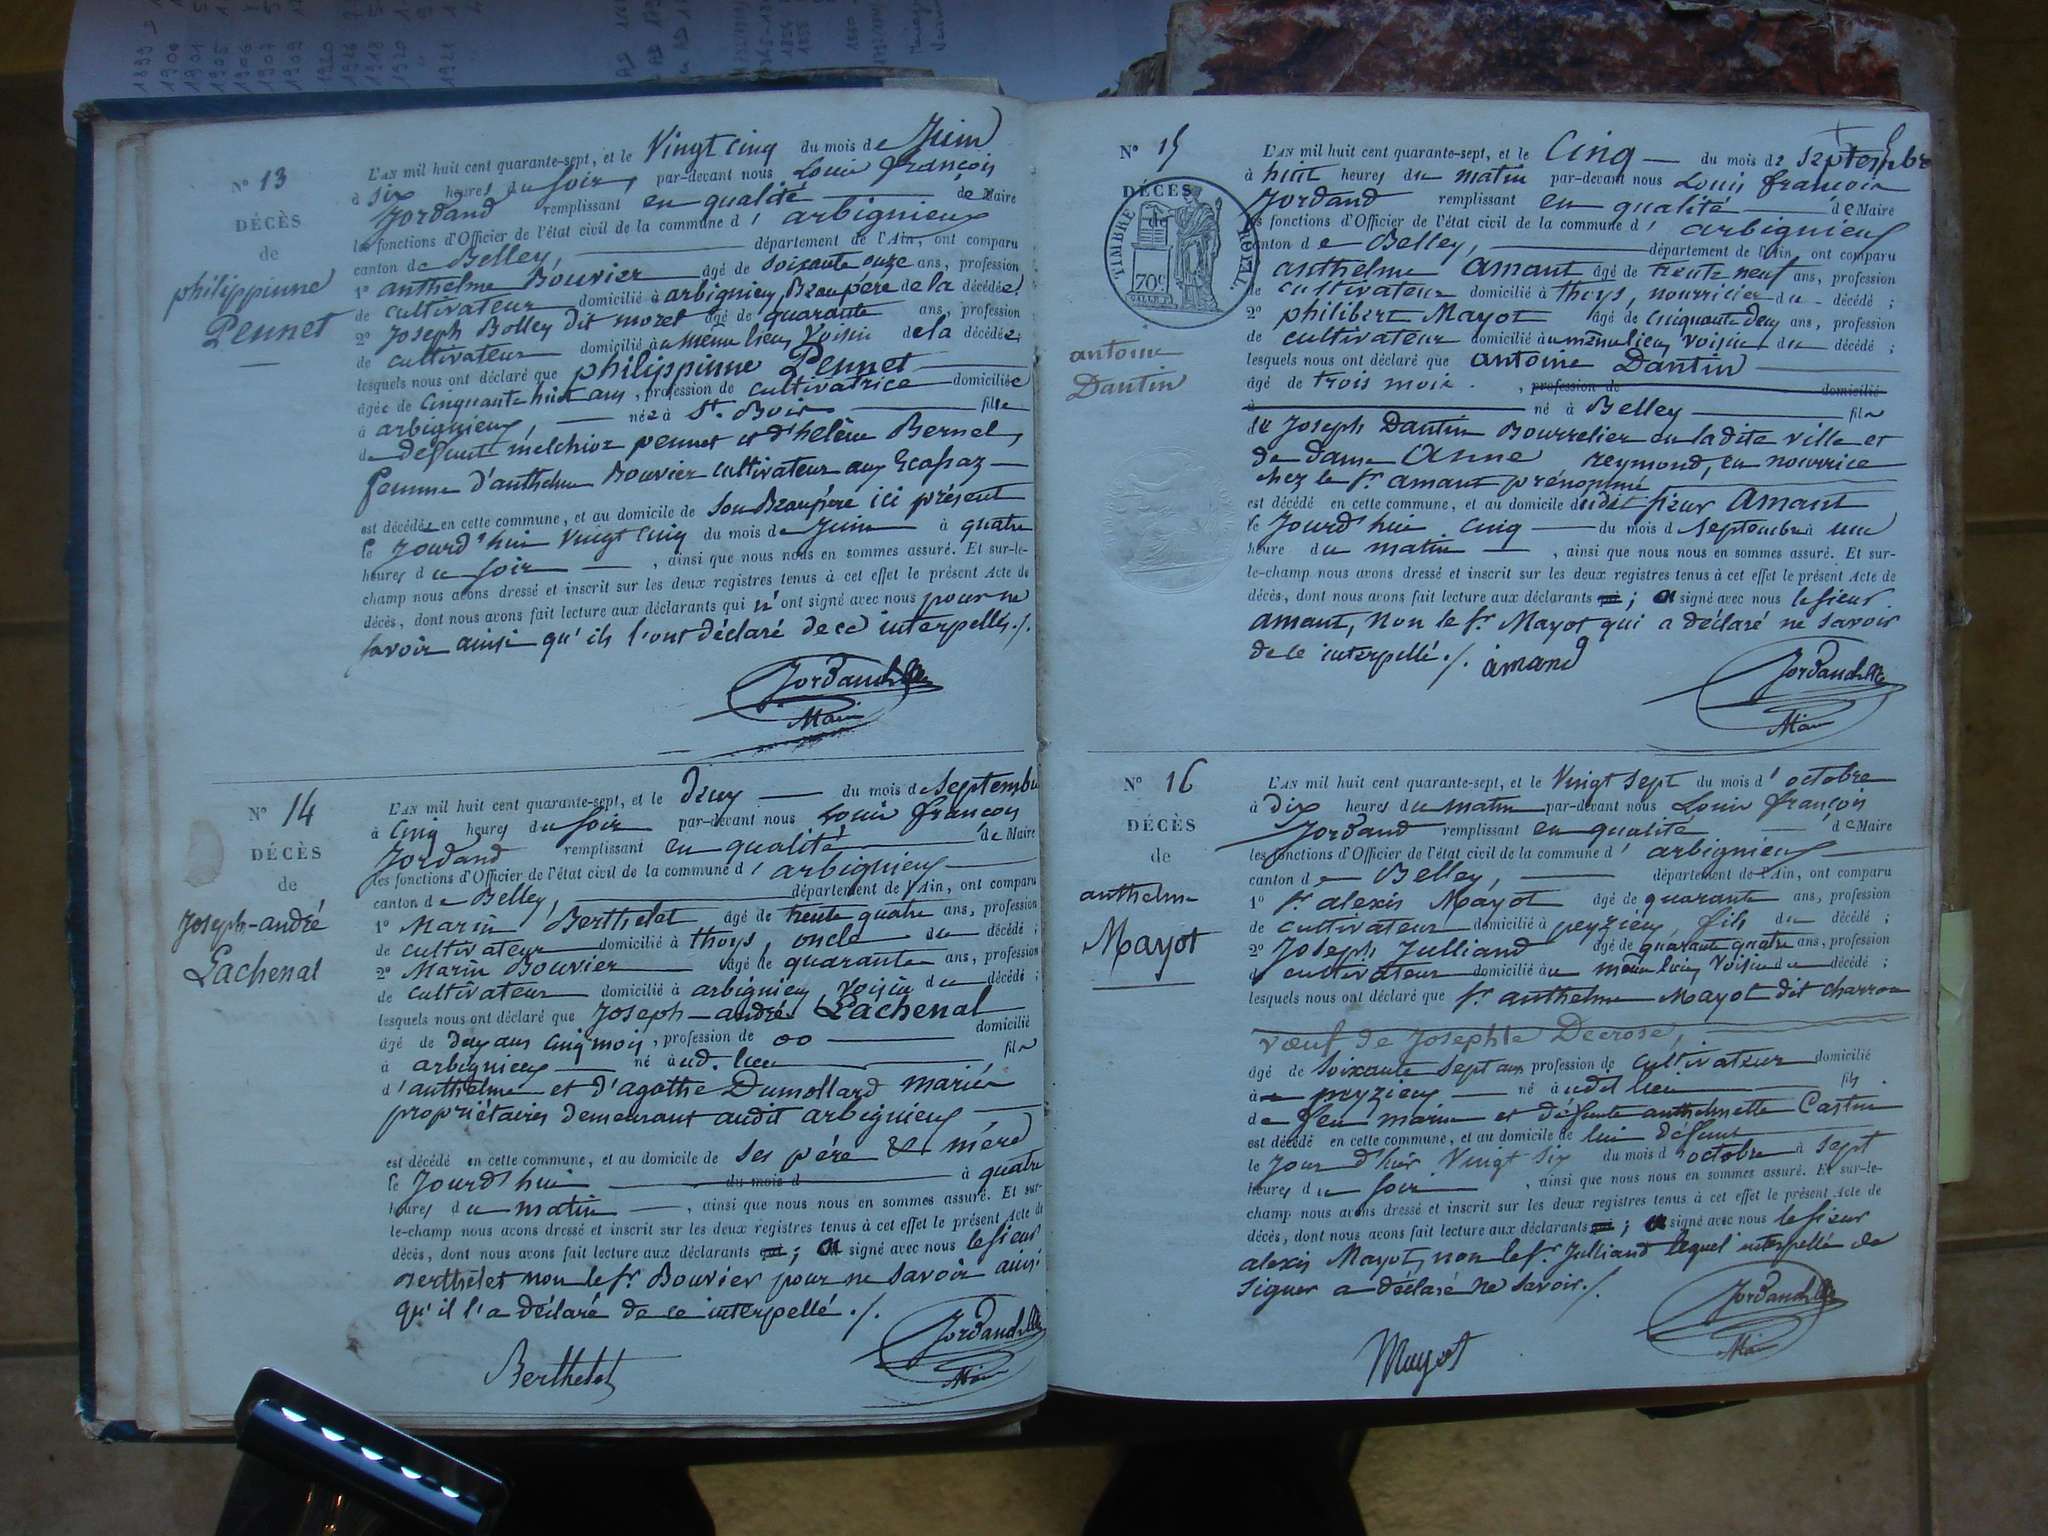 N° 13
DÉCÈS
de
philippinne
Pennet
L'AN mil huit cent quarante-sept, et le Vingt cinq du mois de Juin
à six heures du soir, par-devant nous Louis françois
Jordand remplissant en qualité de Maire
les fonctions d'Officier de l'état civil de la commune d'arbignieux
canton de Belley, département de l'Ain, ont comparu
1° anthelme Bouvier âgé de soixante onze ans, profession
de cultivateur domicilié à arbignieu, Beaupère de la décédée;
2° Joseph Bolley dit moret âgé de quarante ans, profession
de cultivateur domicilié au même lieu, Voisin de la décédée;
lesquels nous ont déclaré que philippinne Pennet
âgée de cinquante huit ans, profession de cultivatrice domiciliée
à arbignieux, née à St. Bois fille
de defunt melchior pennet et d'helène Bernel,
femme d'anthelme Bouvier cultivateur aux Ecassaz
est décédée en cette commune, et au domicile de son Beaupère ici présent
le Jourd'hui vingt cinq du mois de Juin à quatre
heures du soir, ainsi que nous nous en sommes assuré. Et sur-le-
champ nous avons dressé et inscrit sur les deux registres tenus à cet effet le présent Acte de
décès, dont nous avons fait lecture aux déclarants qui n'ont signé avec nous pour ne
savoir ainsi qu'ils l'ont déclaré de ce interpellés./.
Jordand
Maire
N° 14
DÉCÈS
de
Joseph-andré
Lachenal
L'AN mil huit cent quarante-sept, et le deux du mois de Septembre
à cinq heures du soir par-devant nous Louis françois
Jordand remplissant en qualité de Maire
les fonctions d'Officier de l'état civil de la commune d'arbignieux
canton de Belley, département de l'Ain, ont comparu
1° Marin Berthelet âgé de trente quatre ans, profession
de cultivateur domicilié à thoys, oncle du décédé;
2° Marin Bouvier âgé de quarante ans, profession
de cultivateur domicilié à arbignieu, voisin du décédé;
lesquels nous ont déclaré que Joseph-andré Lachenal
âgé de deux ans cinq mois, profession de domicilié
à arbignieux né aud. lieu fils
d'anthelme et d'agathe Dumollard mariés
propriétaires demeurant audit arbignieux
est décédé en cette commune, et au domicile de ses père & mère
le Jourd'hui du mois d à quatre
heures du matin, ainsi que nous nous en sommes assuré. Et sur-
le-champ nous avons dressé et inscrit sur les deux registres tenus à cet effet le présent Acte de
décès, dont nous avons fait lecture aux déclarants qui; a signé avec nous le sieur
Berthelet non le sr. Bouvier pour ne savoir ainsi
qu'il l'a déclaré de ce interpellé./.
Berthelet
Jordand
Maire
N° 15
DÉCÈS
de
TIMBRE ROYAL.
70c.
antoine
Dantin
L'AN mil huit cent quarante-sept, et le Cinq du mois de septembre
à huit heures du matin par-devant nous Louis françois
Jordand remplissant en qualité de Maire
les fonctions d'Officier de l'état civil de la commune d'arbignieux
canton de Belley, département de l'Ain, ont comparu
anthelme Amant âgé de trente neuf ans, profession
de cultivateur domicilié à thoys, nourricier du décédé;
2° philibert Mayot âgé de cinquante deux ans, profession
de cultivateur domicilié au même lieu, voisin du décédé;
lesquels nous ont déclaré que antoine Dantin
âgé de trois mois, profession de domicilié
à né à Belley fils
de Joseph Dantin Bourrelier en ladite ville et
de dame Anne reymond, en nourrice
chez le sr. amant prénommé
est décédé en cette commune, et au domicile dudit sieur Amant
le Jourd'hui cinq du mois de septembre à une
heure du matin, ainsi que nous nous en sommes assuré. Et sur-
le-champ nous avons dressé et inscrit sur les deux registres tenus à cet effet le présent Acte de
décès, dont nous avons fait lecture aux déclarants qui; a signé avec nous le sieur
amant, non le sr. Mayot qui a déclaré ne savoir
de ce interpellé./. amand
Jordand
Maire
N° 16
DÉCÈS
de
anthelme
Mayot
L'AN mil huit cent quarante-sept, et le Vingt sept du mois d'octobre
à dix heures du matin par-devant nous Louis françois
Jordand remplissant en qualité de Maire
les fonctions d'Officier de l'état civil de la commune d'arbignieux
canton de Belley, département de l'Ain, ont comparu
1° sr. alexis Mayot âgé de quarante ans, profession
de cultivateur domicilié à peyzieu, fils du décédé;
2° Joseph Julliand âgé de quarante quatre ans, profession
de cultivateur domicilié au même lieu, Voisin du décédé;
lesquels nous ont déclaré que sr. anthelme Mayot dit charron
vœuf de Josephte Decrose,
âgé de soixante sept ans profession de cultivateur domicilié
à peyzieu, né audit lieu fils
de feu marin et défunte anthelmette Castin
est décédé en cette commune, et au domicile de lui défunt
le Jour d'hier Vingt six du mois d'octobre à sept
heures du soir, ainsi que nous nous en sommes assuré. Et sur-le-
champ nous avons dressé et inscrit sur les deux registres tenus à cet effet le présent Acte de
décès, dont nous avons fait lecture aux déclarants qui; a signé avec nous le sieur
alexis Mayot, non le sr. Julliand lequel interpellé de
signer a déclaré ne savoir./.
Mayot
Jordand
Maire